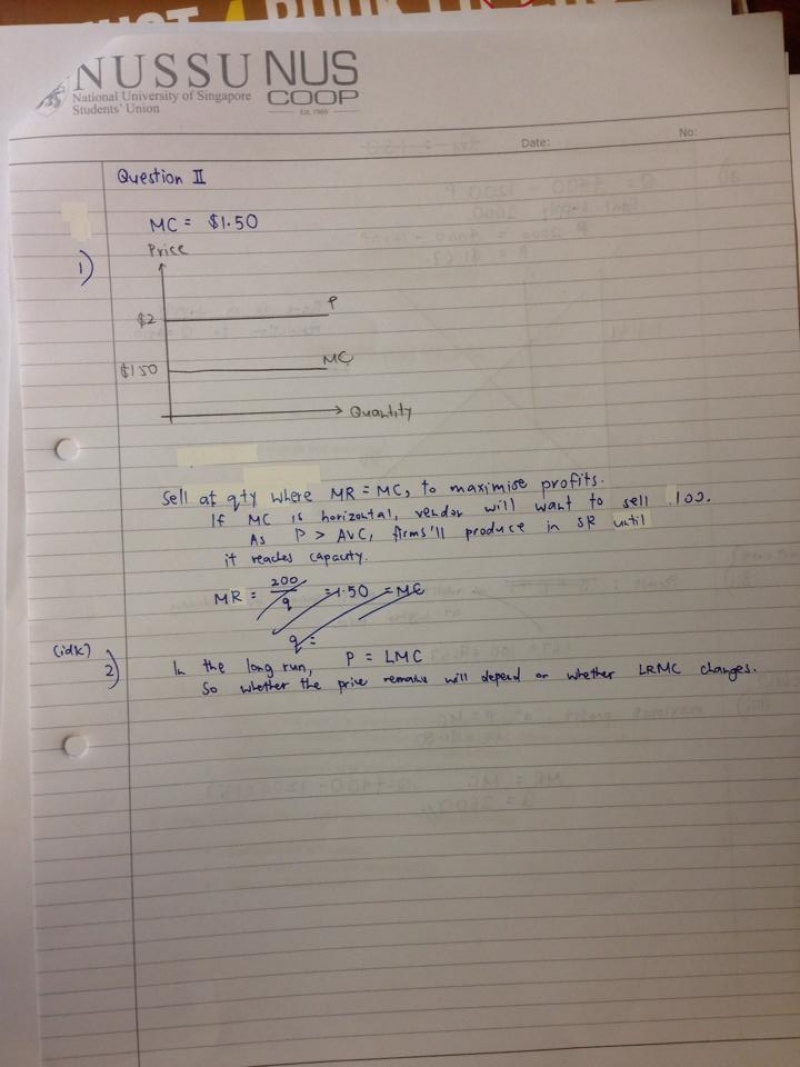 NUSSU NUS
National University of Singapore COOP
Students' Union
Date:
No:
Question II
MC = $1.50
1)
Price
P
$2
MC
$1.50
Quantity
Sell at qty where MR = MC, to maximise profits.
If MC is horizontal, vendor will want to sell 100.
As P > AVC, firms'll produce in SR until
it reaches capacity.
MR = 200/q = 1.50 = MC
q =
(idk)
2) In the long run, P = LMC
So whether the price remains will depend on whether LRMC changes.